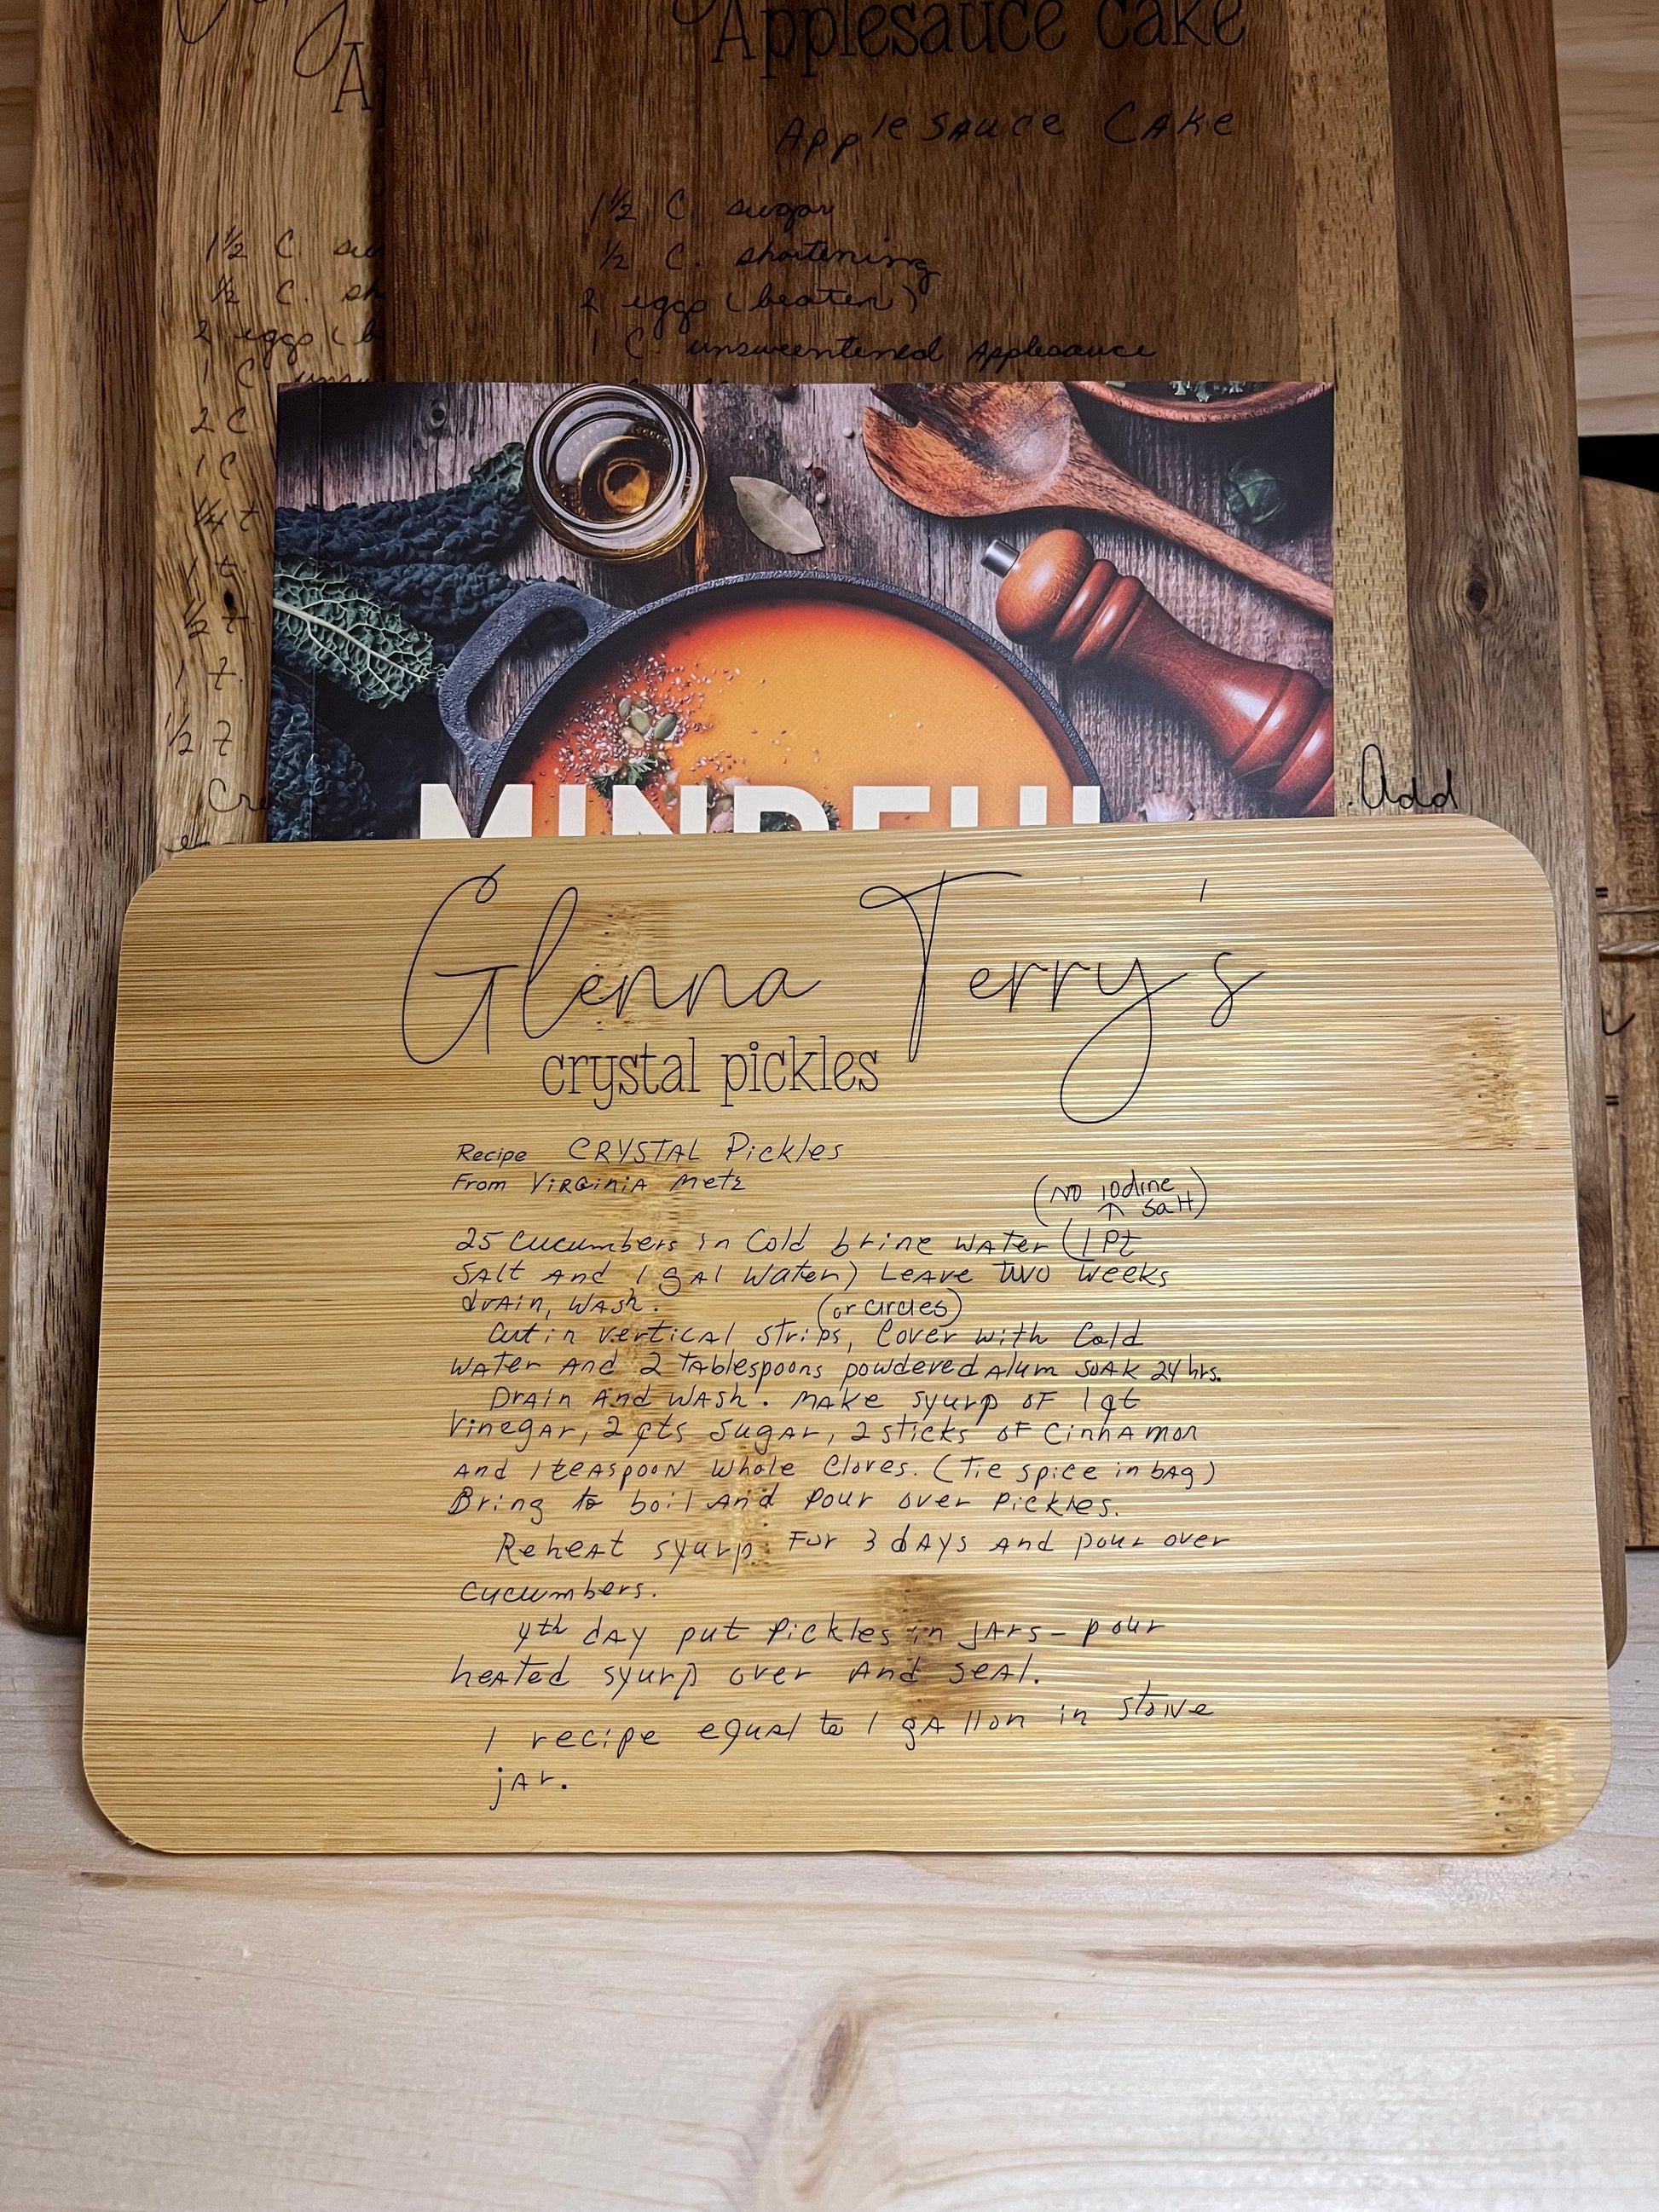 Applesauce cake
Applesauce Cake
1½ C. sugar
½ C. shortening
2 eggs (beaten)
1 C. unsweentened Applesauce
A
1½ C. su
½ C. sh
2 eggs (b
1 C. unsw
2 C
1 C
1/4 t
1 t.
½ t
1 t.
½ t
Cre
. Add
MINDFUL
Glenna Terry's
crystal pickles
Recipe CRYSTAL Pickles
From VIRGINIA Metz
(NO iodine
↑ Salt)
25 cucumbers in Cold brine WATER (1 Pt
SALT And 1 gAl Water) LEAVE TWO WEEKS
drAin, WAsh.
(or circles)
Cut in VerticAl Strips, Cover with Cold
WATer And 2 TAblespoons powdered Alum SOAK 24 hrs.
DrAin And WAsh. MAKe syurp OF 1 qt
VinegAr, 2 qts SugAr, 2 sticks OF CinnAmon
And 1 teAspooN Whole Cloves. (Tie spice in bAg)
Bring to boil And Pour over Pickles.
ReheAt syurp For 3 dAys And pour over
cucumbers.
4th dAy put Pickles in jArs - pour
heAted syurp over And seAl.
1 recipe equal to 1 gAllon in stone
jAr.